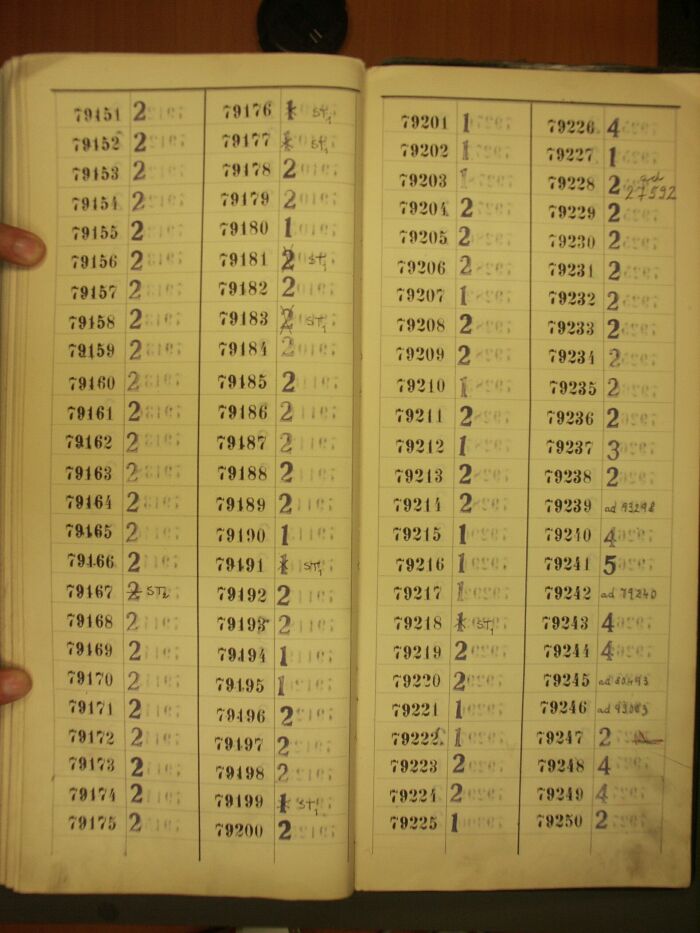 79151 2
79152 2
79153 2
79154 2
79155 2
79156 2
79157 2
79158 2
79159 2
79160 2
79161 2
79162 2
79163 2
79164 2
79165 2
79166 2
79167 2 ST2
79168 2
79169 2
79170 2
79171 2
79172 2
79173 2
79174 2
79175 2
79176 1 ST1
79177 1 ST1
79178 2
79179 2
79180 1
79181 2 ST1
79182 2
79183 2 ST1
79184 2
79185 2
79186 2
79187 2
79188 2
79189 2
79190 1
79191 1 ST1
79192 2
79193 2
79194 1
79195 1
79196 2
79197 2
79198 2
79199 1 ST1
79200 2
79201 1
79202 1
79203 1
79204 2
79205 2
79206 2
79207 1
79208 2
79209 2
79210 1
79211 2
79212 1
79213 2
79214 2
79215 1
79216 1
79217 1
79218 1 ST1
79219 2
79220 2
79221 1
79222 1
79223 2
79224 2
79225 1
79226 4
79227 1
79228 2 ad 27592
79229 2
79230 2
79231 2
79232 2
79233 2
79234 2
79235 2
79236 2
79237 3
79238 2
79239 ad 93298
79240 4
79241 5
79242 ad 79240
79243 4
79244 4
79245 ad
79246 ad
79247 2
79248 4
79249 4
79250 2